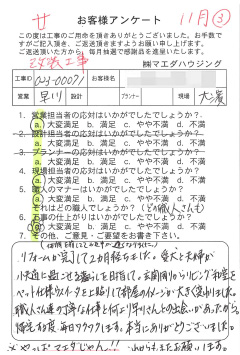 サ お客様アンケート 11月③
この度は工事のご用命を頂きありがとうございました。お手数で
すがご記入頂き、ご返送頂きますようお願い申し上げます。
ご返送頂いた方から、毎月抽選で感謝品を進呈いたします。
改装工事 ㈱マエダハウジング
工事ID 043-00071 お客様名
営業 早川 設計 プランナー 現場 大濱
1. 営業担当者の応対はいかがでしたでしょうか?
a) 大変満足 b. 満足 c. やや不満 d. 不満
2. 設計担当者の応対はいかがでしたでしょうか?
a. 大変満足 b. 満足 c. やや不満 d. 不満
3. プランナーの応対はいかがでしたでしょうか?
a. 大変満足 b. 満足 c. やや不満 d. 不満
4. 現場担当者の応対はいかがでしたでしょうか?
a) 大変満足 b. 満足 c. やや不満 d. 不満
5. 職人のマナーはいかがでしたでしょうか?
a) 大変満足 b. 満足 c. やや不満 d. 不満
それはどの職人でしょうか?(どの職人さんも)
6. 工事の仕上がりはいかがでしたでしょうか?
a) 大変満足 b. 満足 c. やや不満 d. 不満
7. その他、ご意見・ご要望をお書き下さい。
リフォームが完了して2カ月経ちました。愛犬と夫婦が
快適に過ごせる暮らしを目指して、玄関周りからリビング、和室を
ペット仕様クロスを上貼りして部屋のイメージが大きく変わりました。
職人さん達の丁寧な仕事と何より早川さんとの出会いがあったから